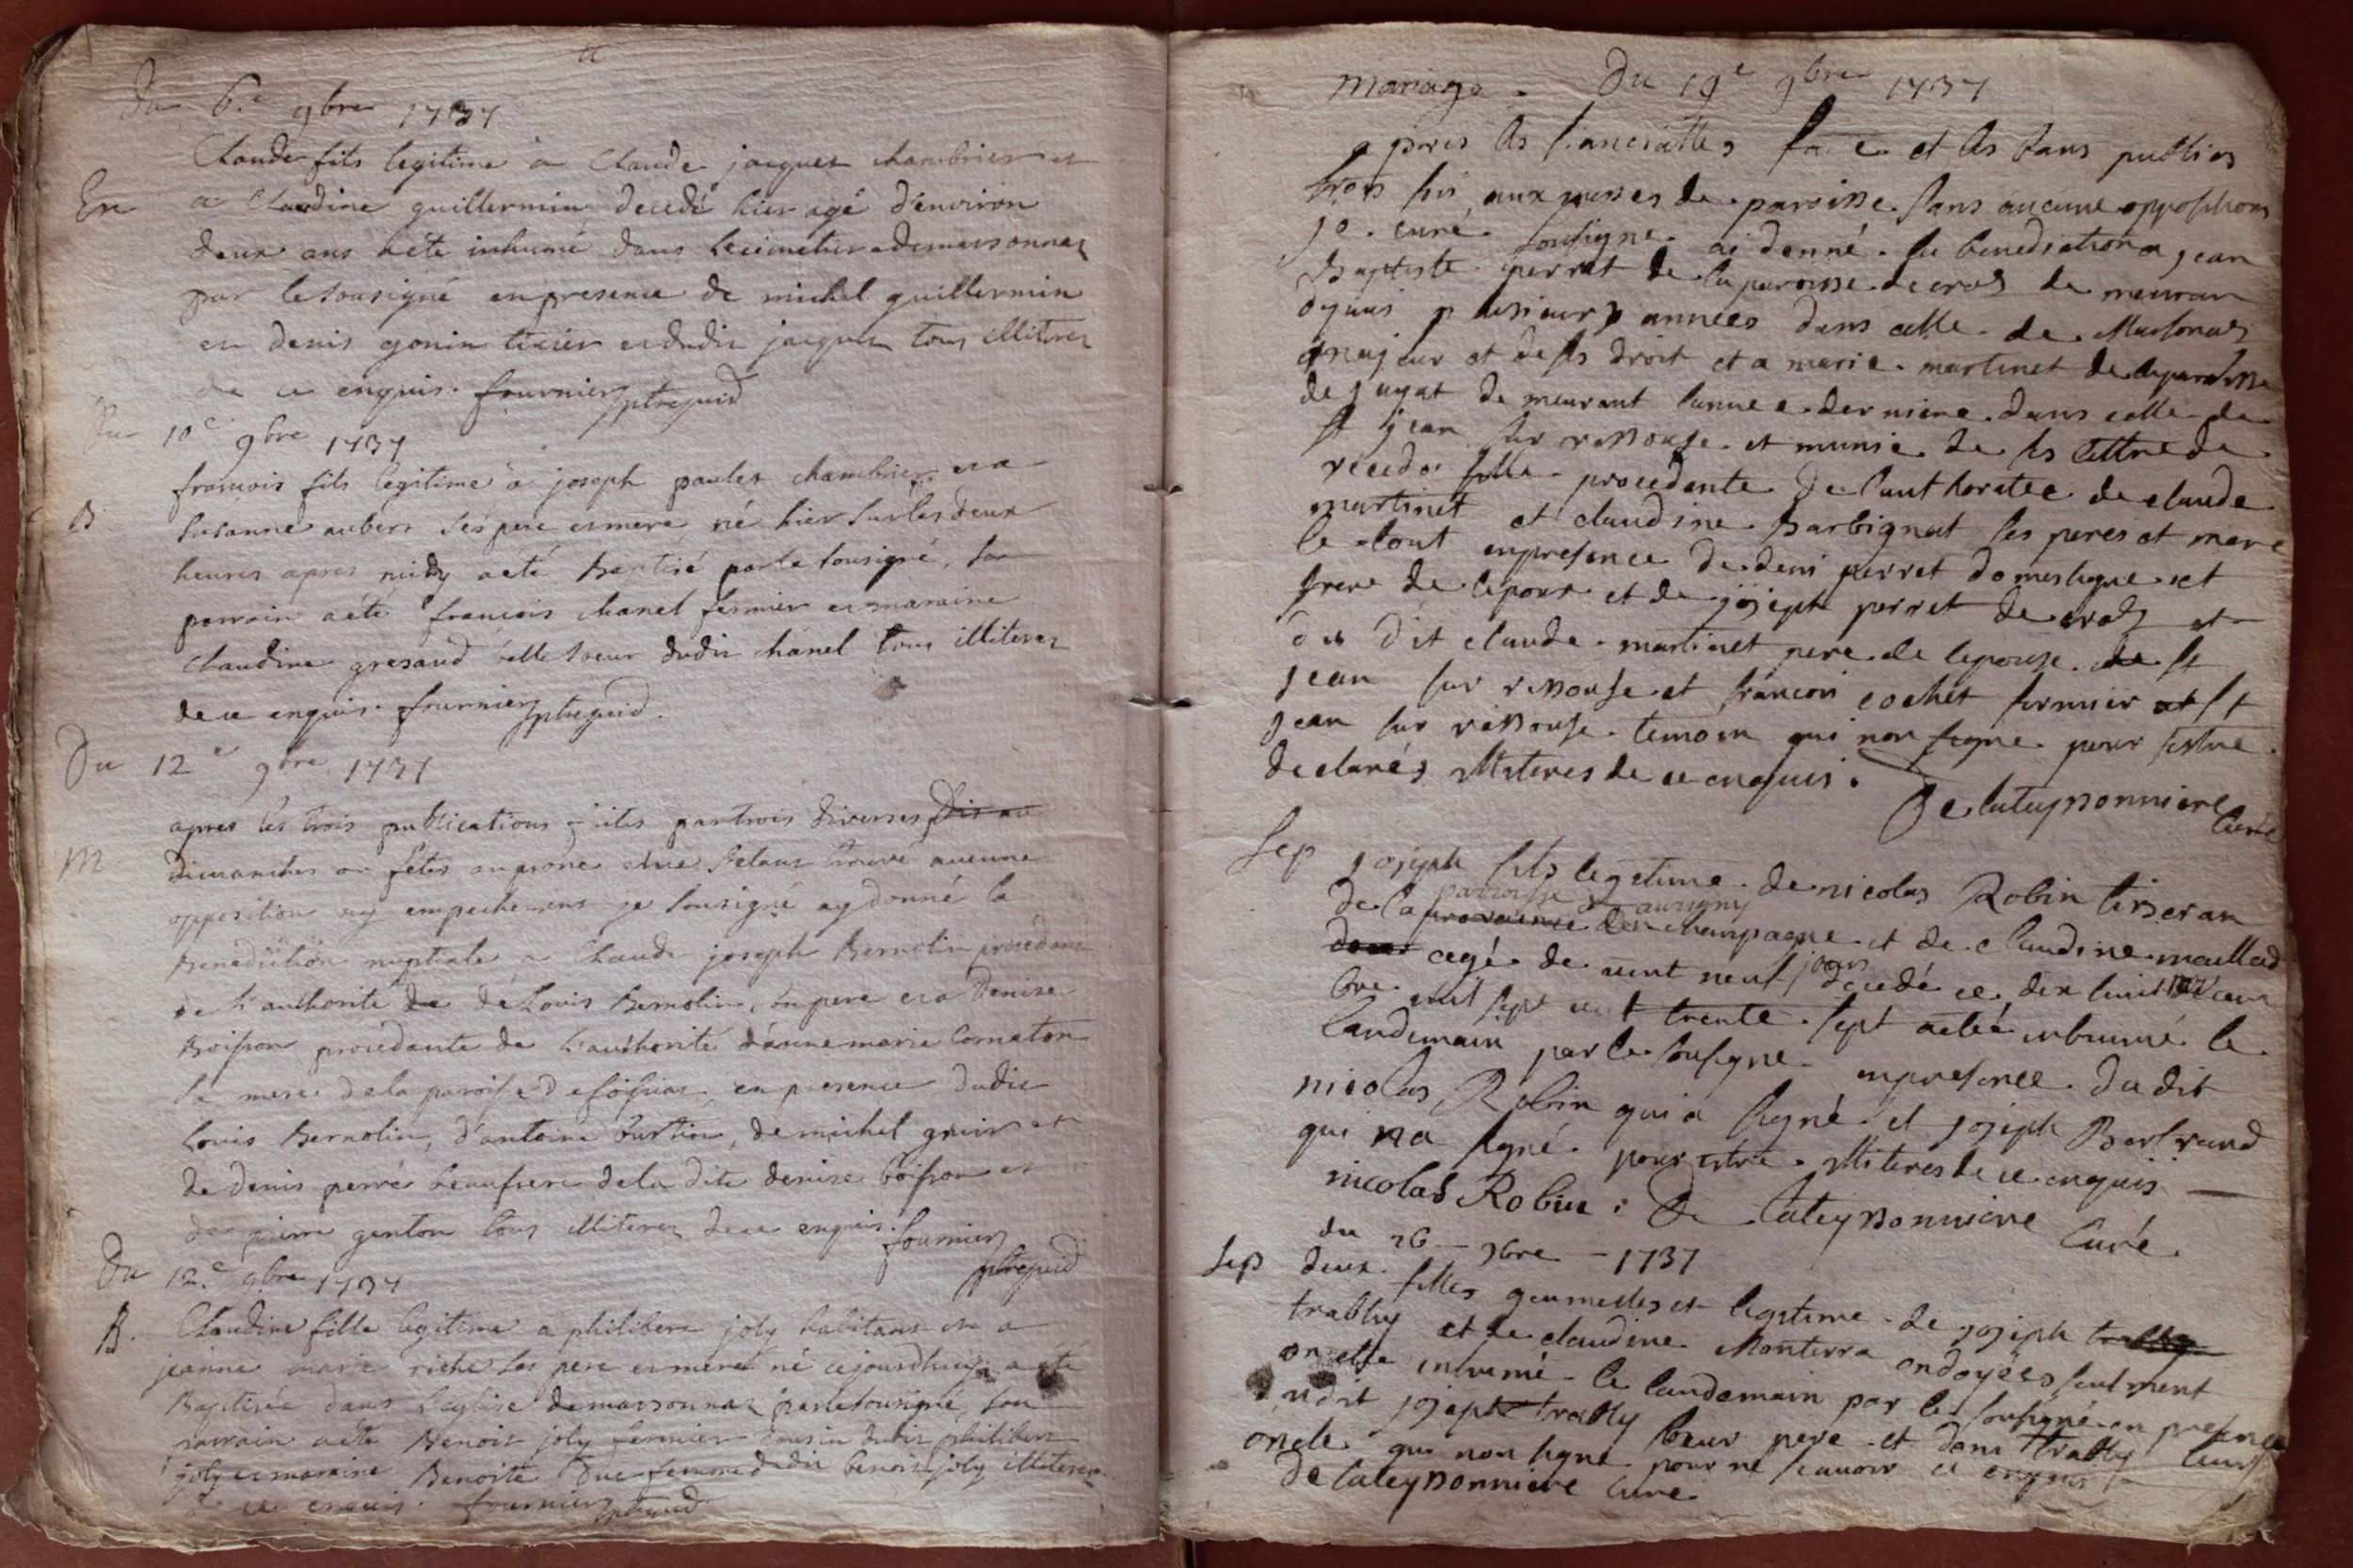 Du 6.e 9bre 1737
Claude fils legitime a Claude jacques chambrier et
En
a Claudine guillermin decedé hier agé d'environ
deux ans a été inhumé dans le cimetiere de marsonnaz
par le sousigné en presence de michel guillermin
et denis gonin tixier et dudit jacques tous illiteres
de ce enquis. fournier ptre
Du 10e 9bre 1737
francois fils legitime a joseph paulet chambrier et a
B
susanne aubert ses pere et mere né hier sur les deux
heures apres midy a eté Baptisé par le sousigné, son
parrain a été francois chanel fermier et maraine
Claudine gresaud belle soeur dudit chanel tous illiteres
de ce enquis. fournier ptre
Du 12e 9bre 1737
apres les trois publications faites par trois diverses
M
dimanches ou fêtes au prone et ne s'etant trouvé aucune
opposition ny empechemens je sousigné ay donné la
Benediction nuptiale a Claude joseph Bernolin procedant
de l'authorité de de Louis Bernolin, son pere et a Denise
Boisson procedante de l'authorité d'anne marie Cornaton
sa mere de la paroisse de foissiat en presence dudit
Louis Bernolin, d'antoine, de michel et
de denis perré beaufrere de la dite denise boisson et
de pierre genton tous illiteres de ce enquis. fournier
ptre
Du 12.e 9bre 1737
B.
Claudine fille legitime a philibert joly habitant et a
jeanne marie riche ses pere et mere né cejourdhuy a été
Baptisée dans l'eglise de marsonnaz par le sousigné, son
parrain a été Benoit joly fermier cousin dudit philibert
joly et maraine Benoite Duc femme dudit benoit joly illiteres
de ce enquis. fournier ptre
mariage. Du 19e 9bre 1737
apres les fiancialles face et les bans publies
trois fois aux messes de paroisse sans aucune oppositions
je curé sousigne ai donné la benediction a jean
Baptiste perret de la paroisse de cras de meurant
depuis plusieurs années dans celle de Marsonas
majeur et de ses droit et a marie martinet de la paroisse
de jayat de meurant l'annee derniere dans celle de
st jean sur ressouse et munie de ses lettre de
recedo fille procedante de l'authoratee de claude
martinet et claudine Barbignat ses peres et mere
le tout en presence de deni perret domestique et
frere de l'epoux et de joseph perret de cras et
du dit claude martinet pere de l'epouse de st
jean sur ressouse et francois cochet fermier at st
jean sur ressouse temoin qui non signe pour s'estre
declarés illiteres de ce enquis.
De lateyssonniere
Curé
Sep
joseph fils legetime de nicolas Robin tisseran
paroisse d'auvigny
de la province de champagne et de claudine maillad
agé de vent neuf jours decedé ce dix huit
bre mil sept cent trente sept a eté inhumé le
landemain par le sousigne en presence du dit
nicolas Robin qui a signé et joseph Bertrand
qui na signé pour estre illiteres de ce enquis
nicolas Robin : De lateyssonniere Curé.
du 26 - 9bre - 1737
Sep
deux filles geumelles et legitime de joseph trablly
trablly et de claudine Monterra ondoyees seulment
on ette inhumé le landemain par le sousigné en presence
du dit joseph trablly leur pere et dani trablly leur
oncle qui non signé pour ne scavoir ce enquis
De lateyssonniere Curé